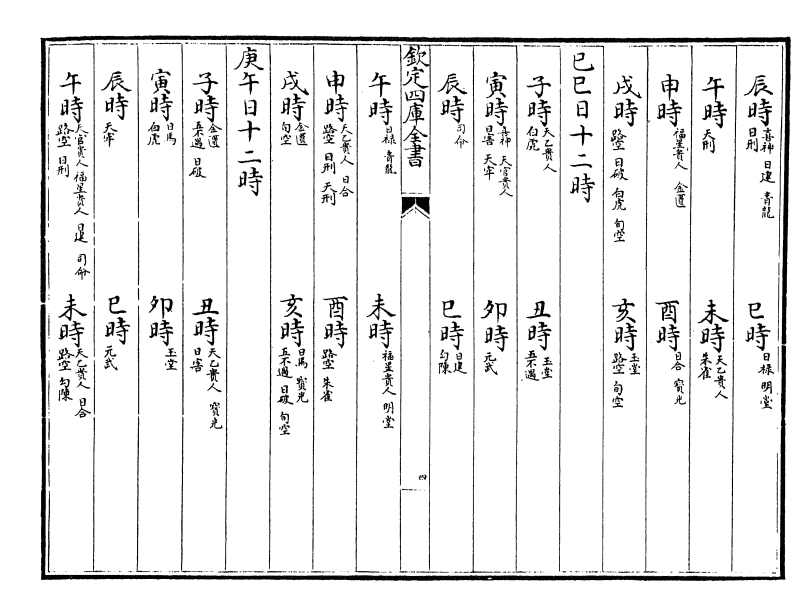 辰時喜神 日建 青龍日刑　巳時日祿 明堂
午時天刑　未時天乙貴人朱雀
申時福星貴人 金匱　酉時日合 寶光
戌時路空 日破 白虎 旬空　亥時玉堂路空 旬空
己巳日十二時
子時天乙貴人白虎　丑時玉堂五不遇
寅時喜神 天官貴人日害 天牢　卯時元武
辰時司命　巳時日建勾陳
欽定四庫全書
四
午時日祿 青龍　未時福星貴人 明堂
申時天乙貴人 日合路空 日刑 天刑　酉時路空 朱雀
戌時金匱旬空　亥時日馬 寶光五不遇 日破 旬空
庚午日十二時
子時金匱五不遇 日破　丑時天乙貴人 寶光日害
寅時日馬白虎　卯時玉堂
辰時天牢　巳時元武
午時天官貴人 福星貴人 日建 司命路空 日刑　未時天乙貴人 日合路空 勾陳